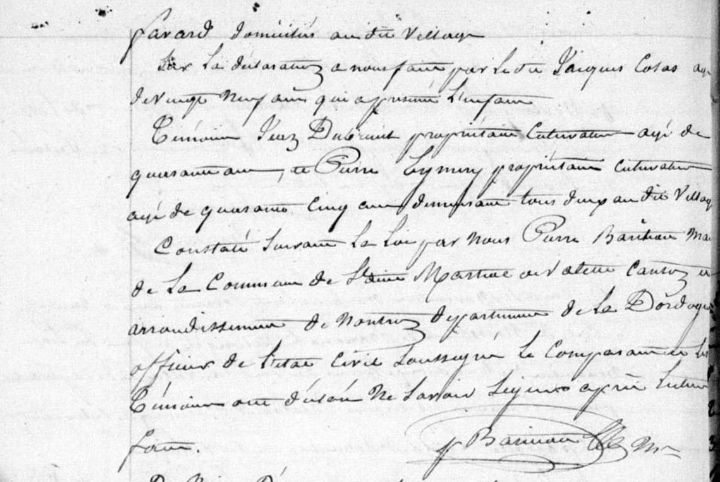 favard domiciliés au dit Village
Sur la déclaration a nous faite par le dit Jacques Cosas a
de vingt neuf ans qui a présenté l'enfant
Témoins Jean Dubreuil propriétaire Cultivateur agé de
quarante ans, et Pierre Eymery propriétaire Cultivateur
agé de quarante Cinq ans demeurant tous deux au dit Village
Constaté Suivant la loi par Nous Pierre Ma
de la Commune de Saint Martial de Valette Canton et
arrondissement de Nontron département de la Dordogne
officier de l'état Civil Soussigné le Comparant et les
Témoins ont déclaré Ne Savoir Signer après lecture
faite.